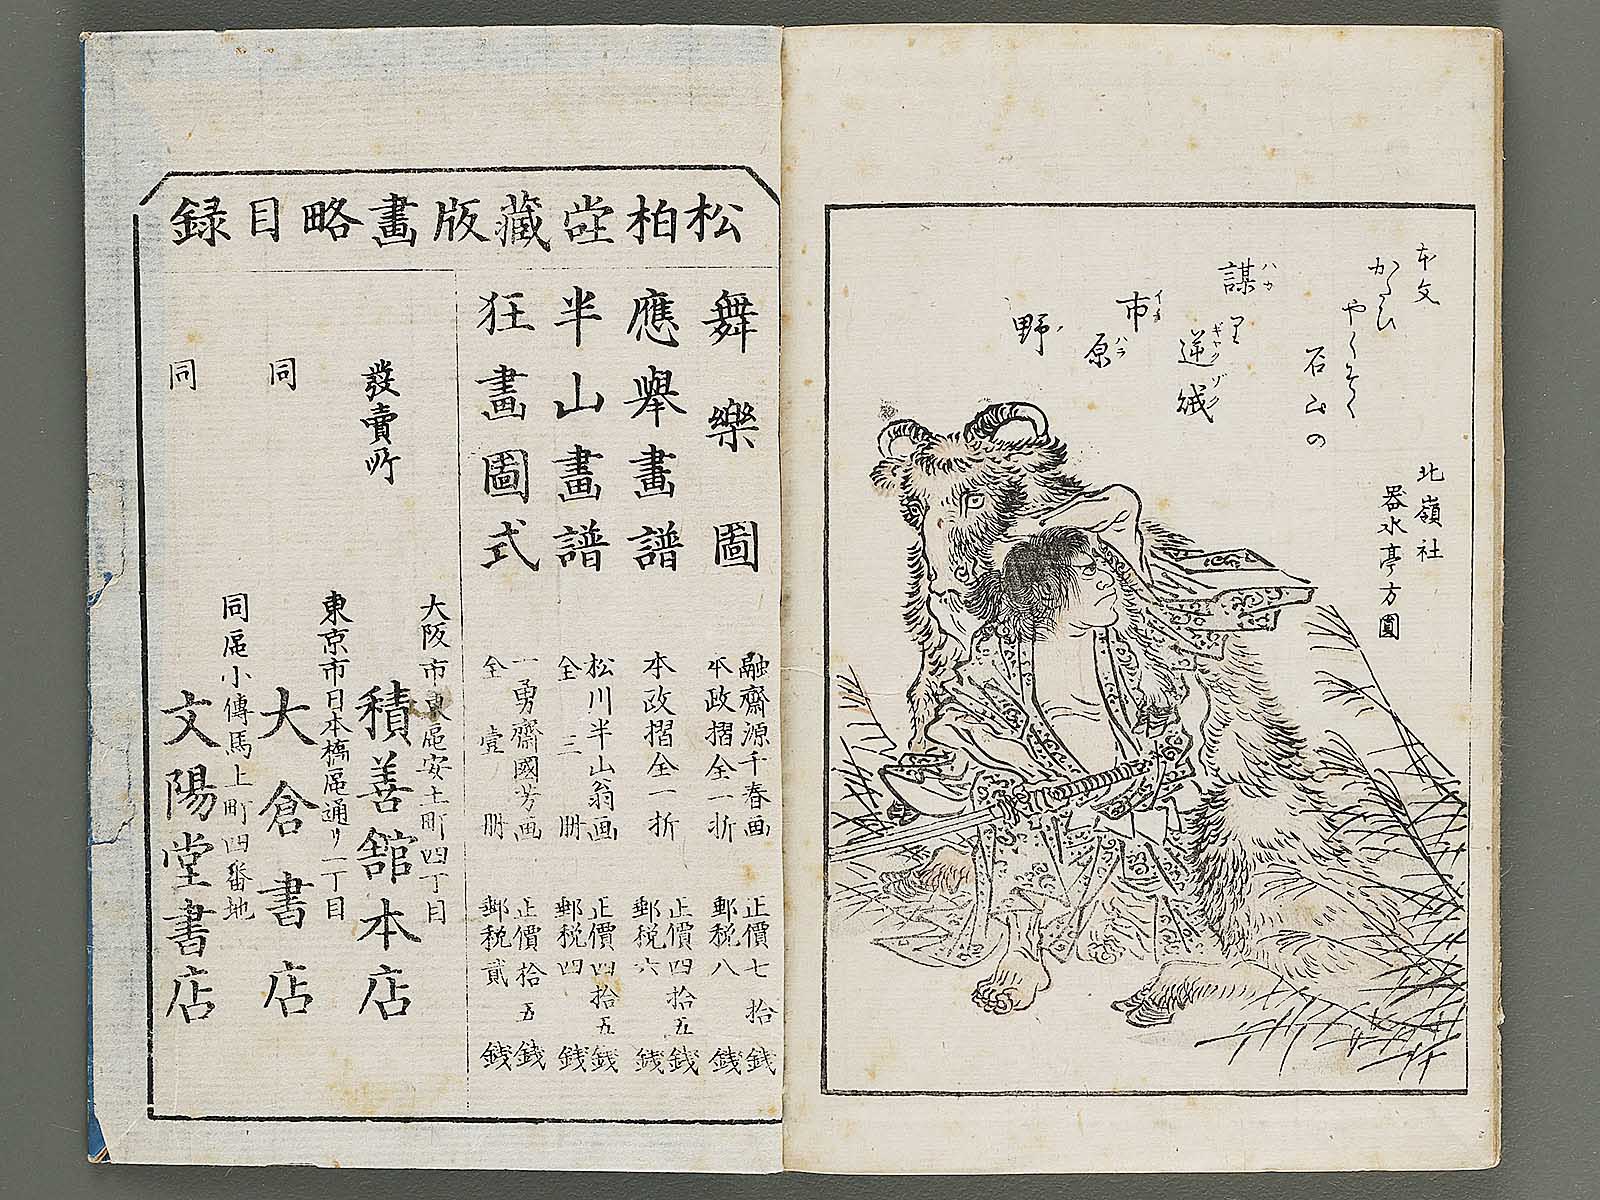 本文
石山の
謀 里
逆 賊
市
原
野
ハカ
ギャクゾク
イチ
ハラ
ノ
北嶺社
器水亭方圓
松柏堂藏版畫略目録
舞樂圖
融齋源千春画
本政摺全一折
正價七拾錢
郵税八錢
應舉畫譜
本政摺全一折
正價四拾五錢
郵税六錢
半山畫譜
松川半山翁画
全三册
正價四拾五錢
郵税四錢
狂畫圖式
一勇齋國芳画
全壹册
正價拾五錢
郵税貳錢
發賣所
大阪市東區安土町四丁目
積善館本店
同
東京市日本橋區通リ一丁目
大倉書店
同
同區小傳馬上町四番地
文陽堂書店